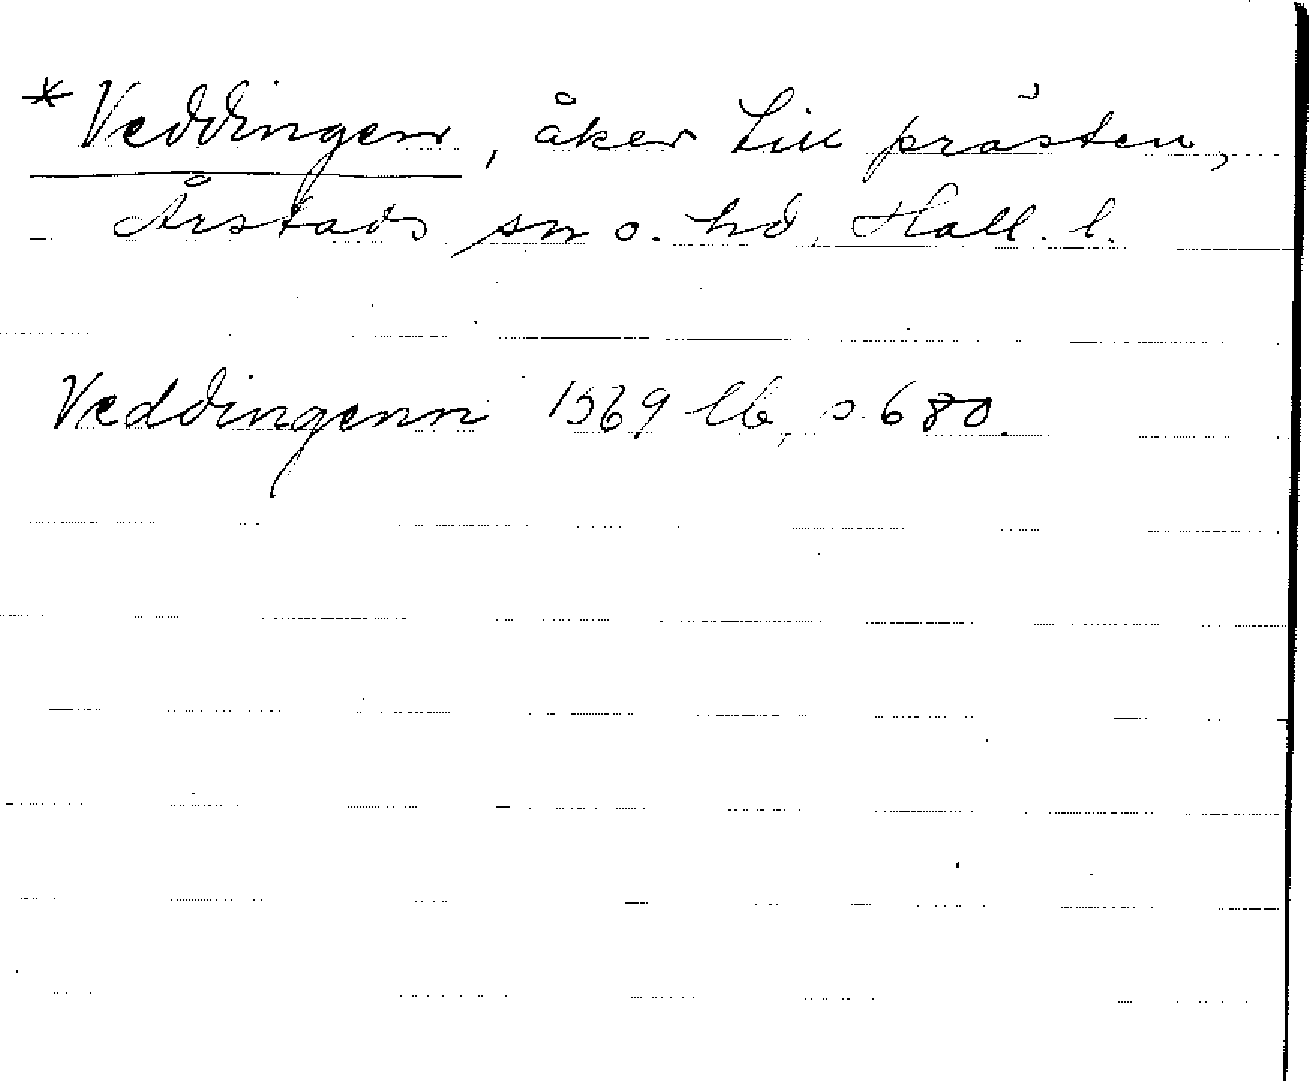 *Veddingen, åker till prästen,
Årstads sn o. hd, Hall. l.
Veddingenn 1569 lb, s. 680.